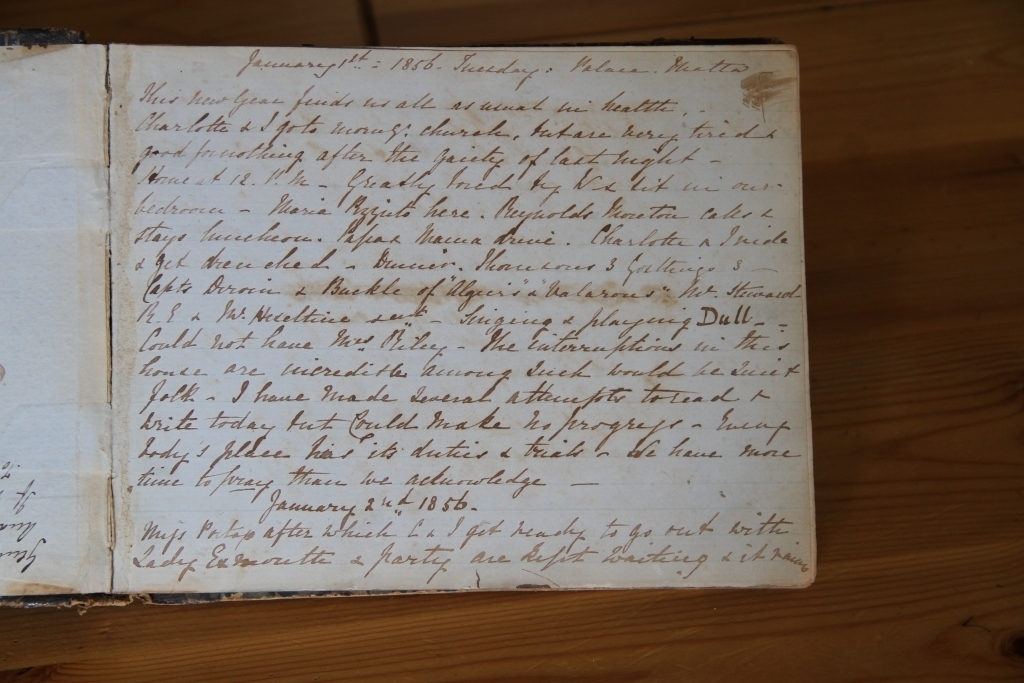 January 1st = 1856. Tuesday. Palace. Malta
This new Year finds us all as usual in health.
Charlotte & I go to morng. church, but are very tired &
good for nothing after the gaiety of last night -
Home at 12. P.M - Greatly bored by W & sit in our
bedroom - Maria here. Reynolds Moreton calls &
stays luncheon. Papa & Mama drive. Charlotte & I ride
& get drenched - Dinner. Thomsons 3 Goslings 3 -
Capts & Buckle of "Algiers" & "Valorous" Mr. Steward
R.E & Mr. Heseltine - Singing & playing Dull -
Could not have Mrs Riley - The interruptions in this
house are incredible among such would be quiet
folk - I have made several attempts to read &
write today but could make no progress - Every
body's place has its duties & trials & We have more
time to pray than we acknowledge -
January 2nd 1856.
Miss after which C & I get ready to go out with
Lady Exmouth & party are kept waiting & it rains